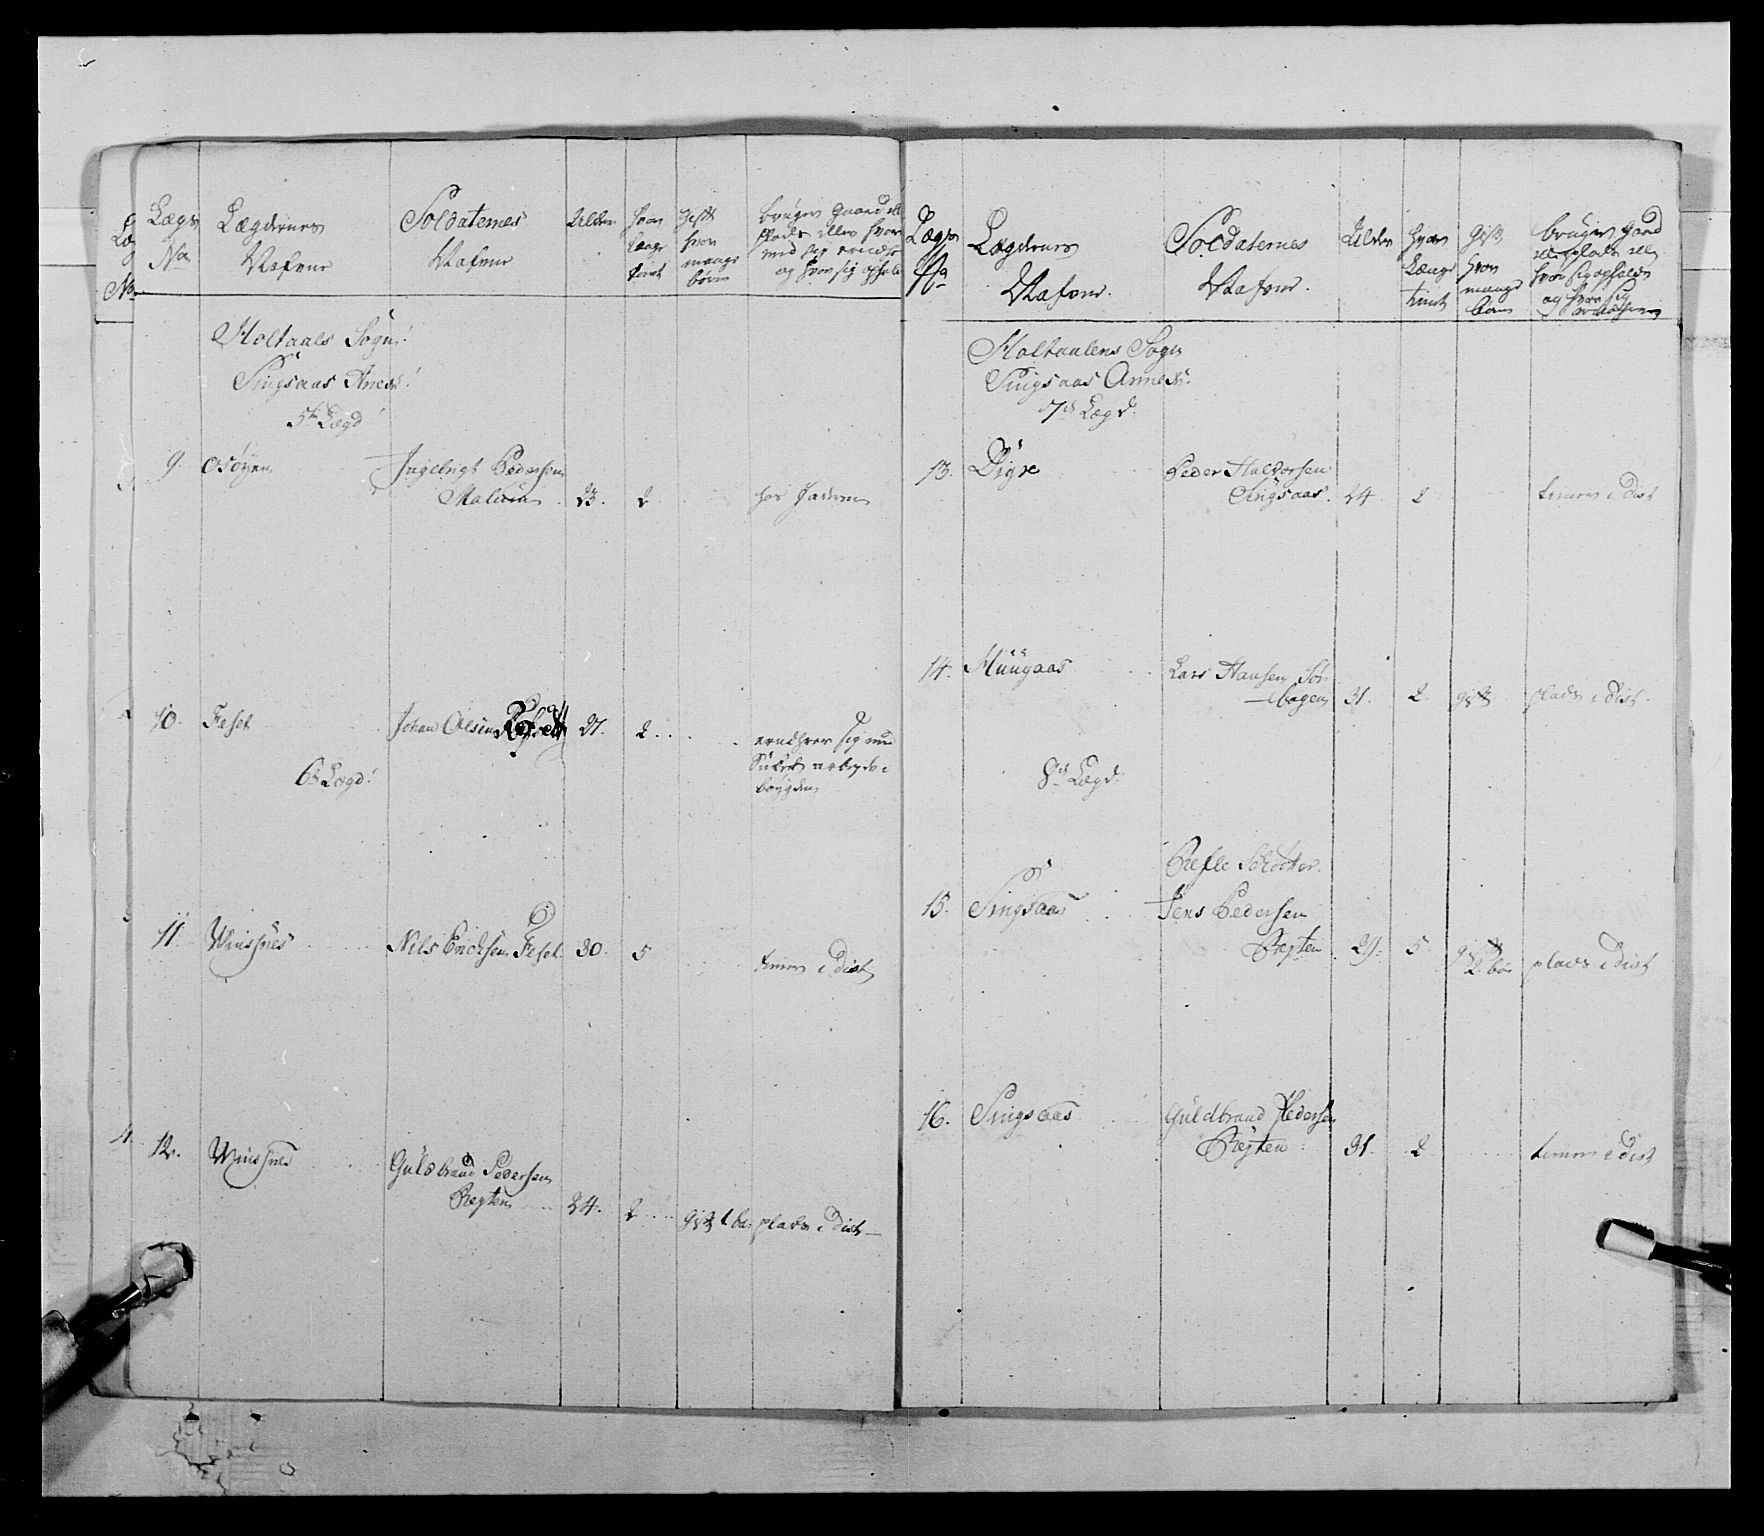 Lægs
No
Lægdernes
Nafne
Soldaternes
Nafne
Alder
hvor
Længe
tient
gift
hvor
mange
børn
bruger Gaard ell
plads eller hvor
med sig ernære
og hvor sig ophol
Holtaals Sogn
Singsaas Anex
5te Lægd
9. Osøyen
Ingebrigt Pedersen
23. 2 hos Faderen
10. Feset
Johan Olsen 27. 2
ernærer sig med
arbeyde i
bøygden
6te Lægd
11 Winsnes
Nils Erichsen Feset 30. 5 tiener i Dist
12. Winsnes
Guldbrand Pedersen
Reyten 24. 2 gift 1 ba: plads i Dist
Lægs
No
Lægdernes
Nafne.
Soldaternes
Nafne.
Alder
hvor
Længe
tient
gift
hvor
mange
børn
bruger Gaard
eller plads ell
hvor sig opholder
og hvor sig
Holtaalens Sogn
Singsaas Annex.
7de Lægd.
13. Digre
Peder Halvorsen
Singsaas. 24 2 tiener i Dist
14. Muugaas
Lars Hansen Sør-
bogen 31. 2 gift plads i Dist.
8de Lægd.
15. Singsaas
Jens Pedersen
Reyten 29. 5 gift
2. bør plads i Dist
16. Singsaas
Guldbrand Pedersen
Reyten 31. 2 tiener i Dist